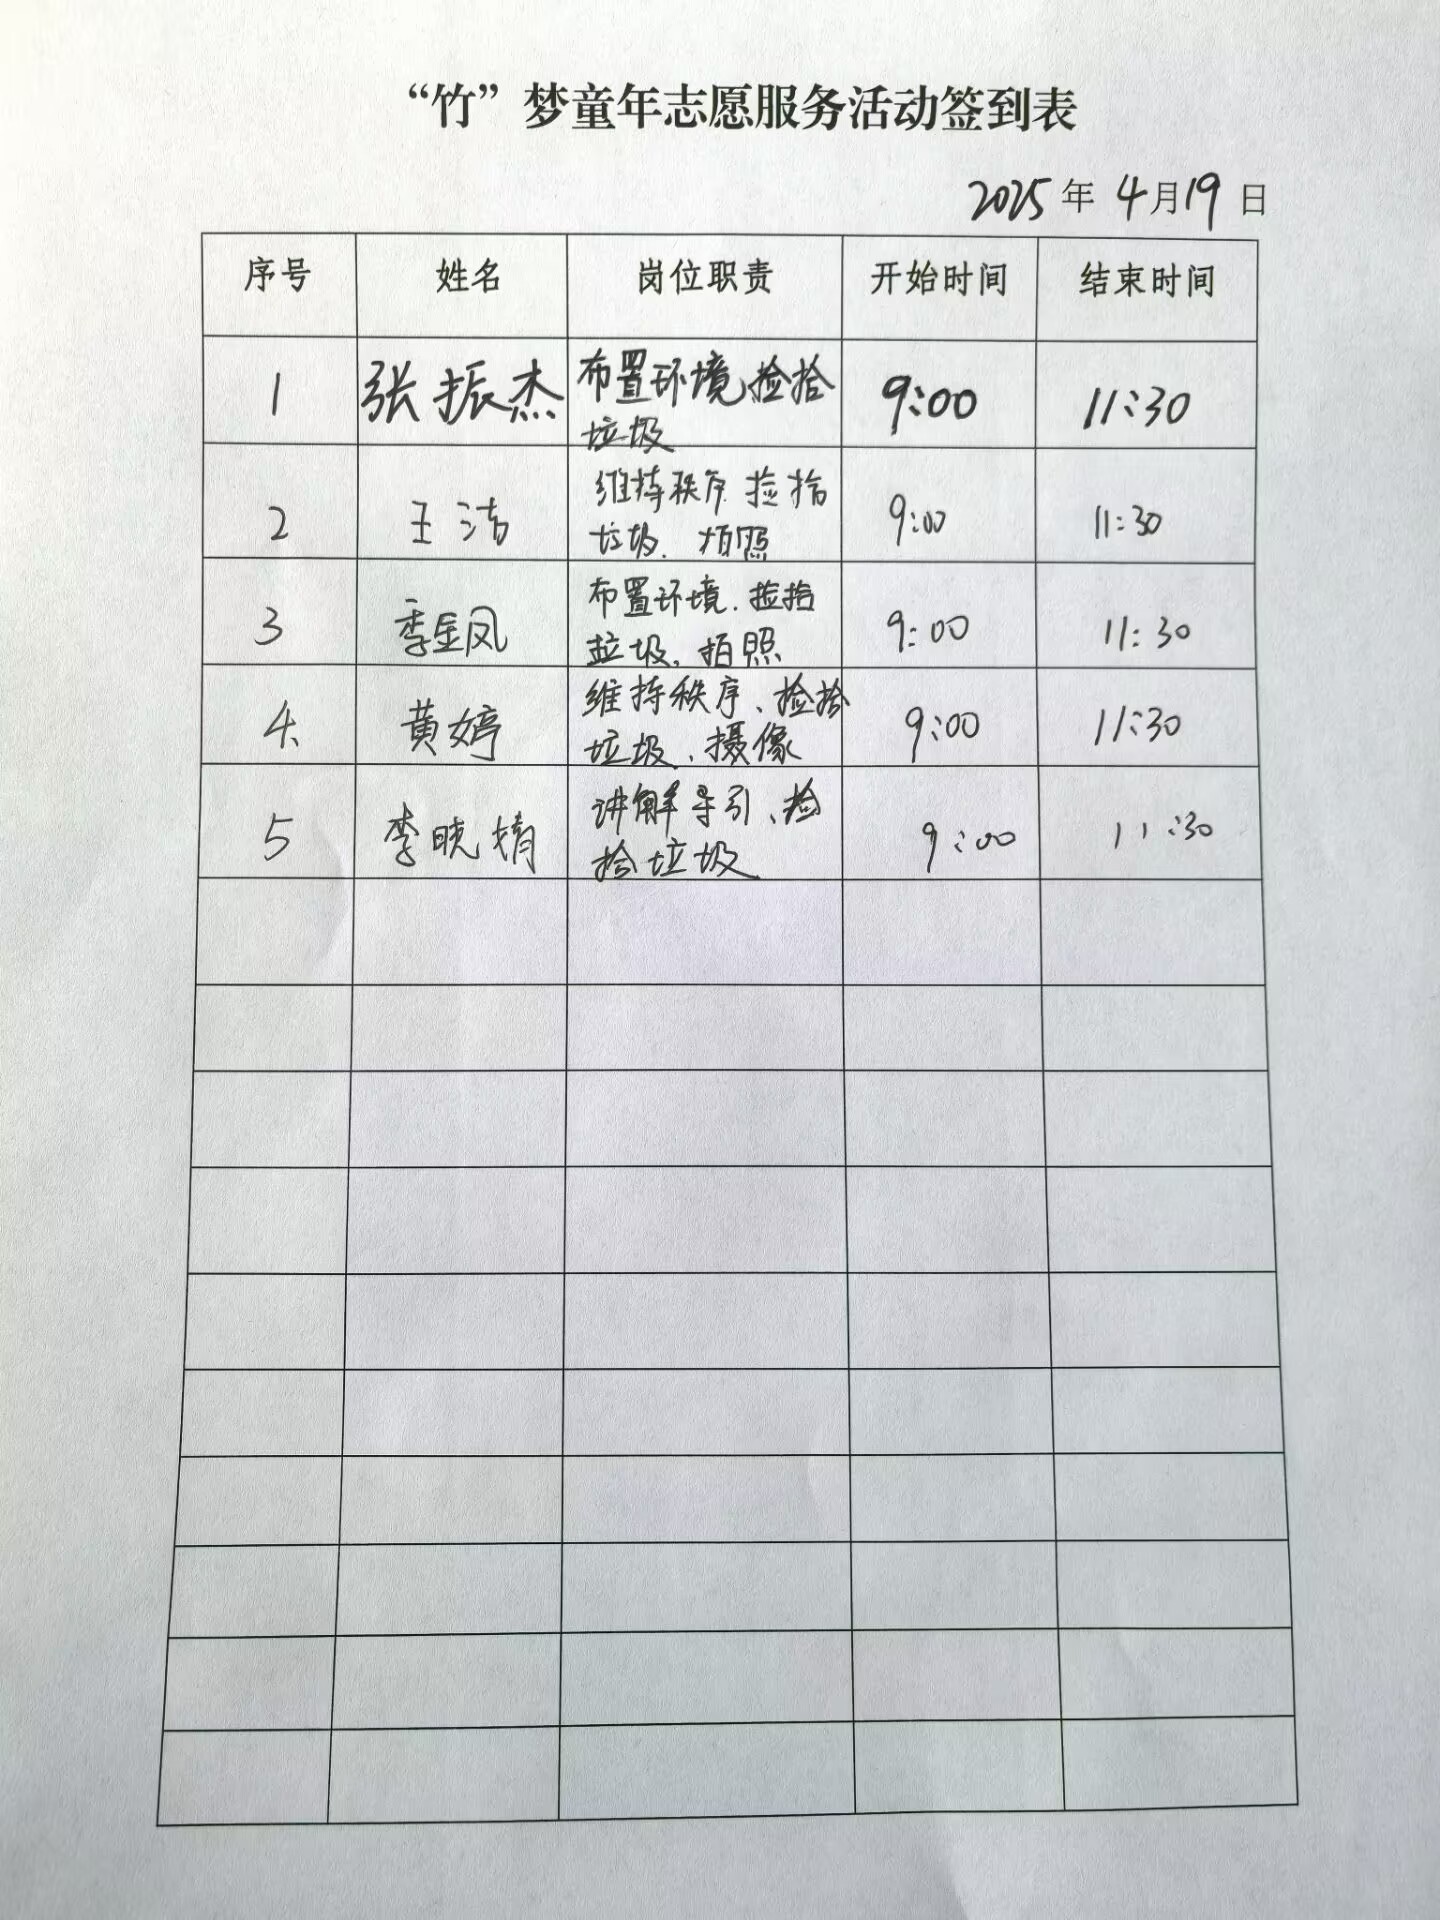 “竹”梦童年志愿服务活动签到表
2025年4月19日
序号 姓名 岗位职责 开始时间 结束时间
1 张振杰 布置环境、捡拾 9:00 11:30
垃圾
2 王洁 维持秩序、捡拾 9:00 11:30
垃圾、拍照
3 季金凤 布置环境、捡拾 9:00 11:30
垃圾、拍照
4 黄婷 维持秩序、捡拾 9:00 11:30
垃圾、摄像
5 李晓婧 讲解导引、捡 9:00 11:30
拾垃圾